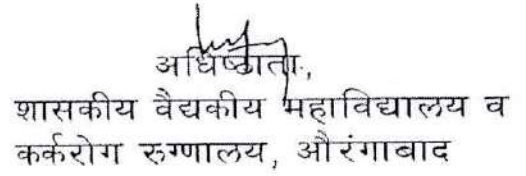 अधिष्ठाता,
शासकीय वैद्यकीय महाविद्यालय व
कर्करोग रुग्णालय, औरंगाबाद